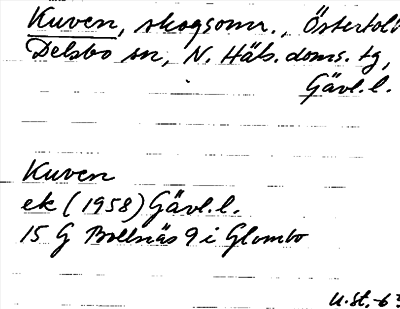 Kuven, skogsomr., Östertolt
Delsbo sn, N. Häls. doms. tg,
Gävl.l.
Kuven
ek (1958) Gävl.l.
15 G Bollnäs 9 i Glombo
U.St. -63